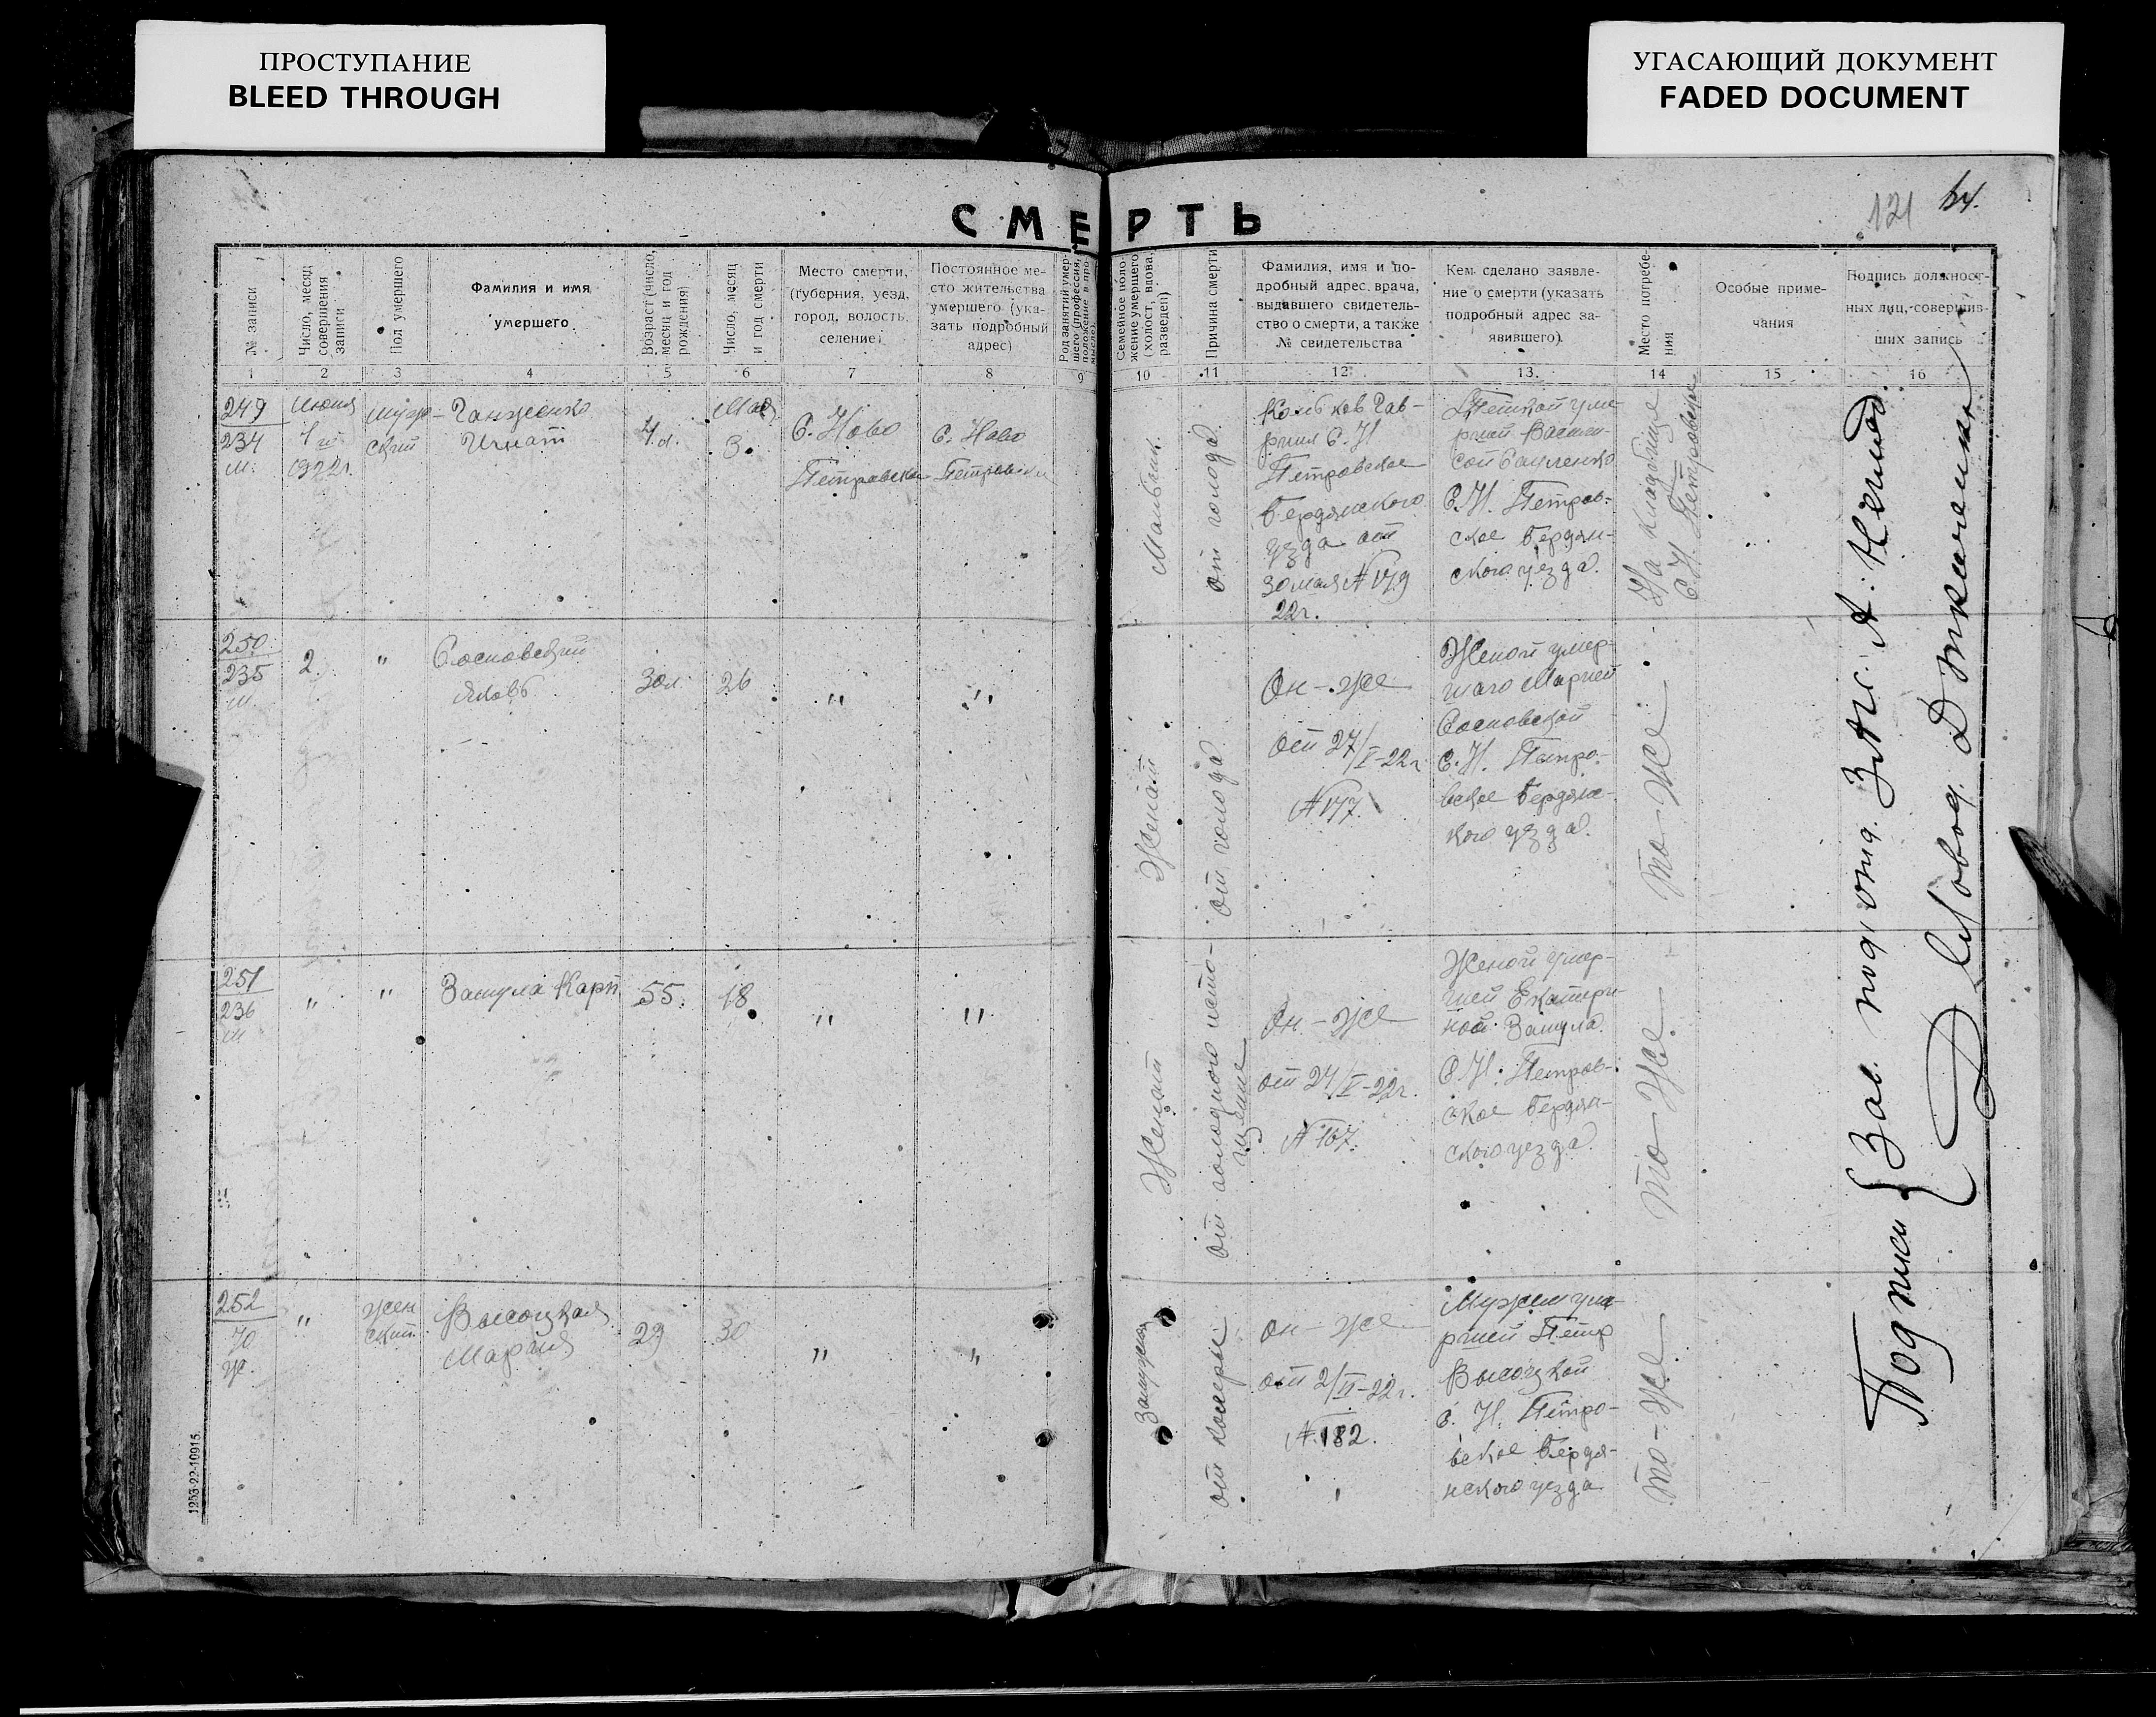 ПРОСТУПАНИЕ
BLEED THROUGH
УГАСАЮЩИЙ ДОКУМЕНТ
FADED DOCUMENT
121
СМЕРТЬ
№ записи
Число, месяц
совершения
записи
Пол умершего
Фамилия и имя
умершего
Возраст (число,
месяц и год
рождения)
Число, месяц
и год смерти
Место смерти,
(губерния, уезд,
город, волость,
селение)
Постоянное ме-
сто жительства
умершего (ука-
зать подробный
адрес)
Род занятий умер-
шего (профессия,
положение в про-
мысле)
Семейное поло-
жение умершего
(холост, вдова,
разведен)
Причина смерти
Фамилия, имя и по-
дробный адрес врача,
выдавшего свидетель-
ство о смерти, а также
№ свидетельства
Кем сделано заявле-
ние о смерти (указать
подробный адрес за-
явившего)
Место погребе-
ния
Особые приме-
чания
Подпись должност-
ных лиц, совершив-
ших запись
1 2 3 4 5 6 7 8 9 10 11 12 13 14 15 16
249
234
м.
Июня
1го
1922г.
муж-
ский
Ганженко
Игнат
4 л.
Мая
3
С. Ново
Петровска
С. Ново
Петровска
Мальчик
от голода
Гав-
рил С. Н
Петровское
Бердянского
уезда от
30 мая № 179
22г.
Теткой уме-
ршей
С. Н. Петров-
ское Бердян-
ского уезда.
На кладбище
С. Н. Петровском
250
235
м.
2
"
Сосновский
Яков
30 л.
26
"
"
Женат
от голода
Он-же
от 27/V-22г.
№ 177.
Женой умер-
шаго Марией
Сосновской
С. Н. Петро-
вское Бердянс-
кого уезда.
то-же
251
236
м
"
"
Зашула Карп
55.
18
"
"
Женат
от голодного исто-
щение
Он-же
от 24/V-22г.
№ 167.
Женой умер-
шей Екатери-
ной Зашула.
С. Н. Петров-
ское Бердян-
ского уезда
то-же
252
70
ж.
"
жен
ский
Высоцкая
Мария
29
30
"
"
Замужняя
от холеры
он-же
от 2/VI-22г.
№ 182.
Мужем уме-
ршей Петр
Высоцкой
С. Н. Петро-
вское Бердя-
нского уезда
то-же
Подписи { Зав. под'отд. ЗАГС: А.
Деловод. Д Ткаченко
1253-22-10915.